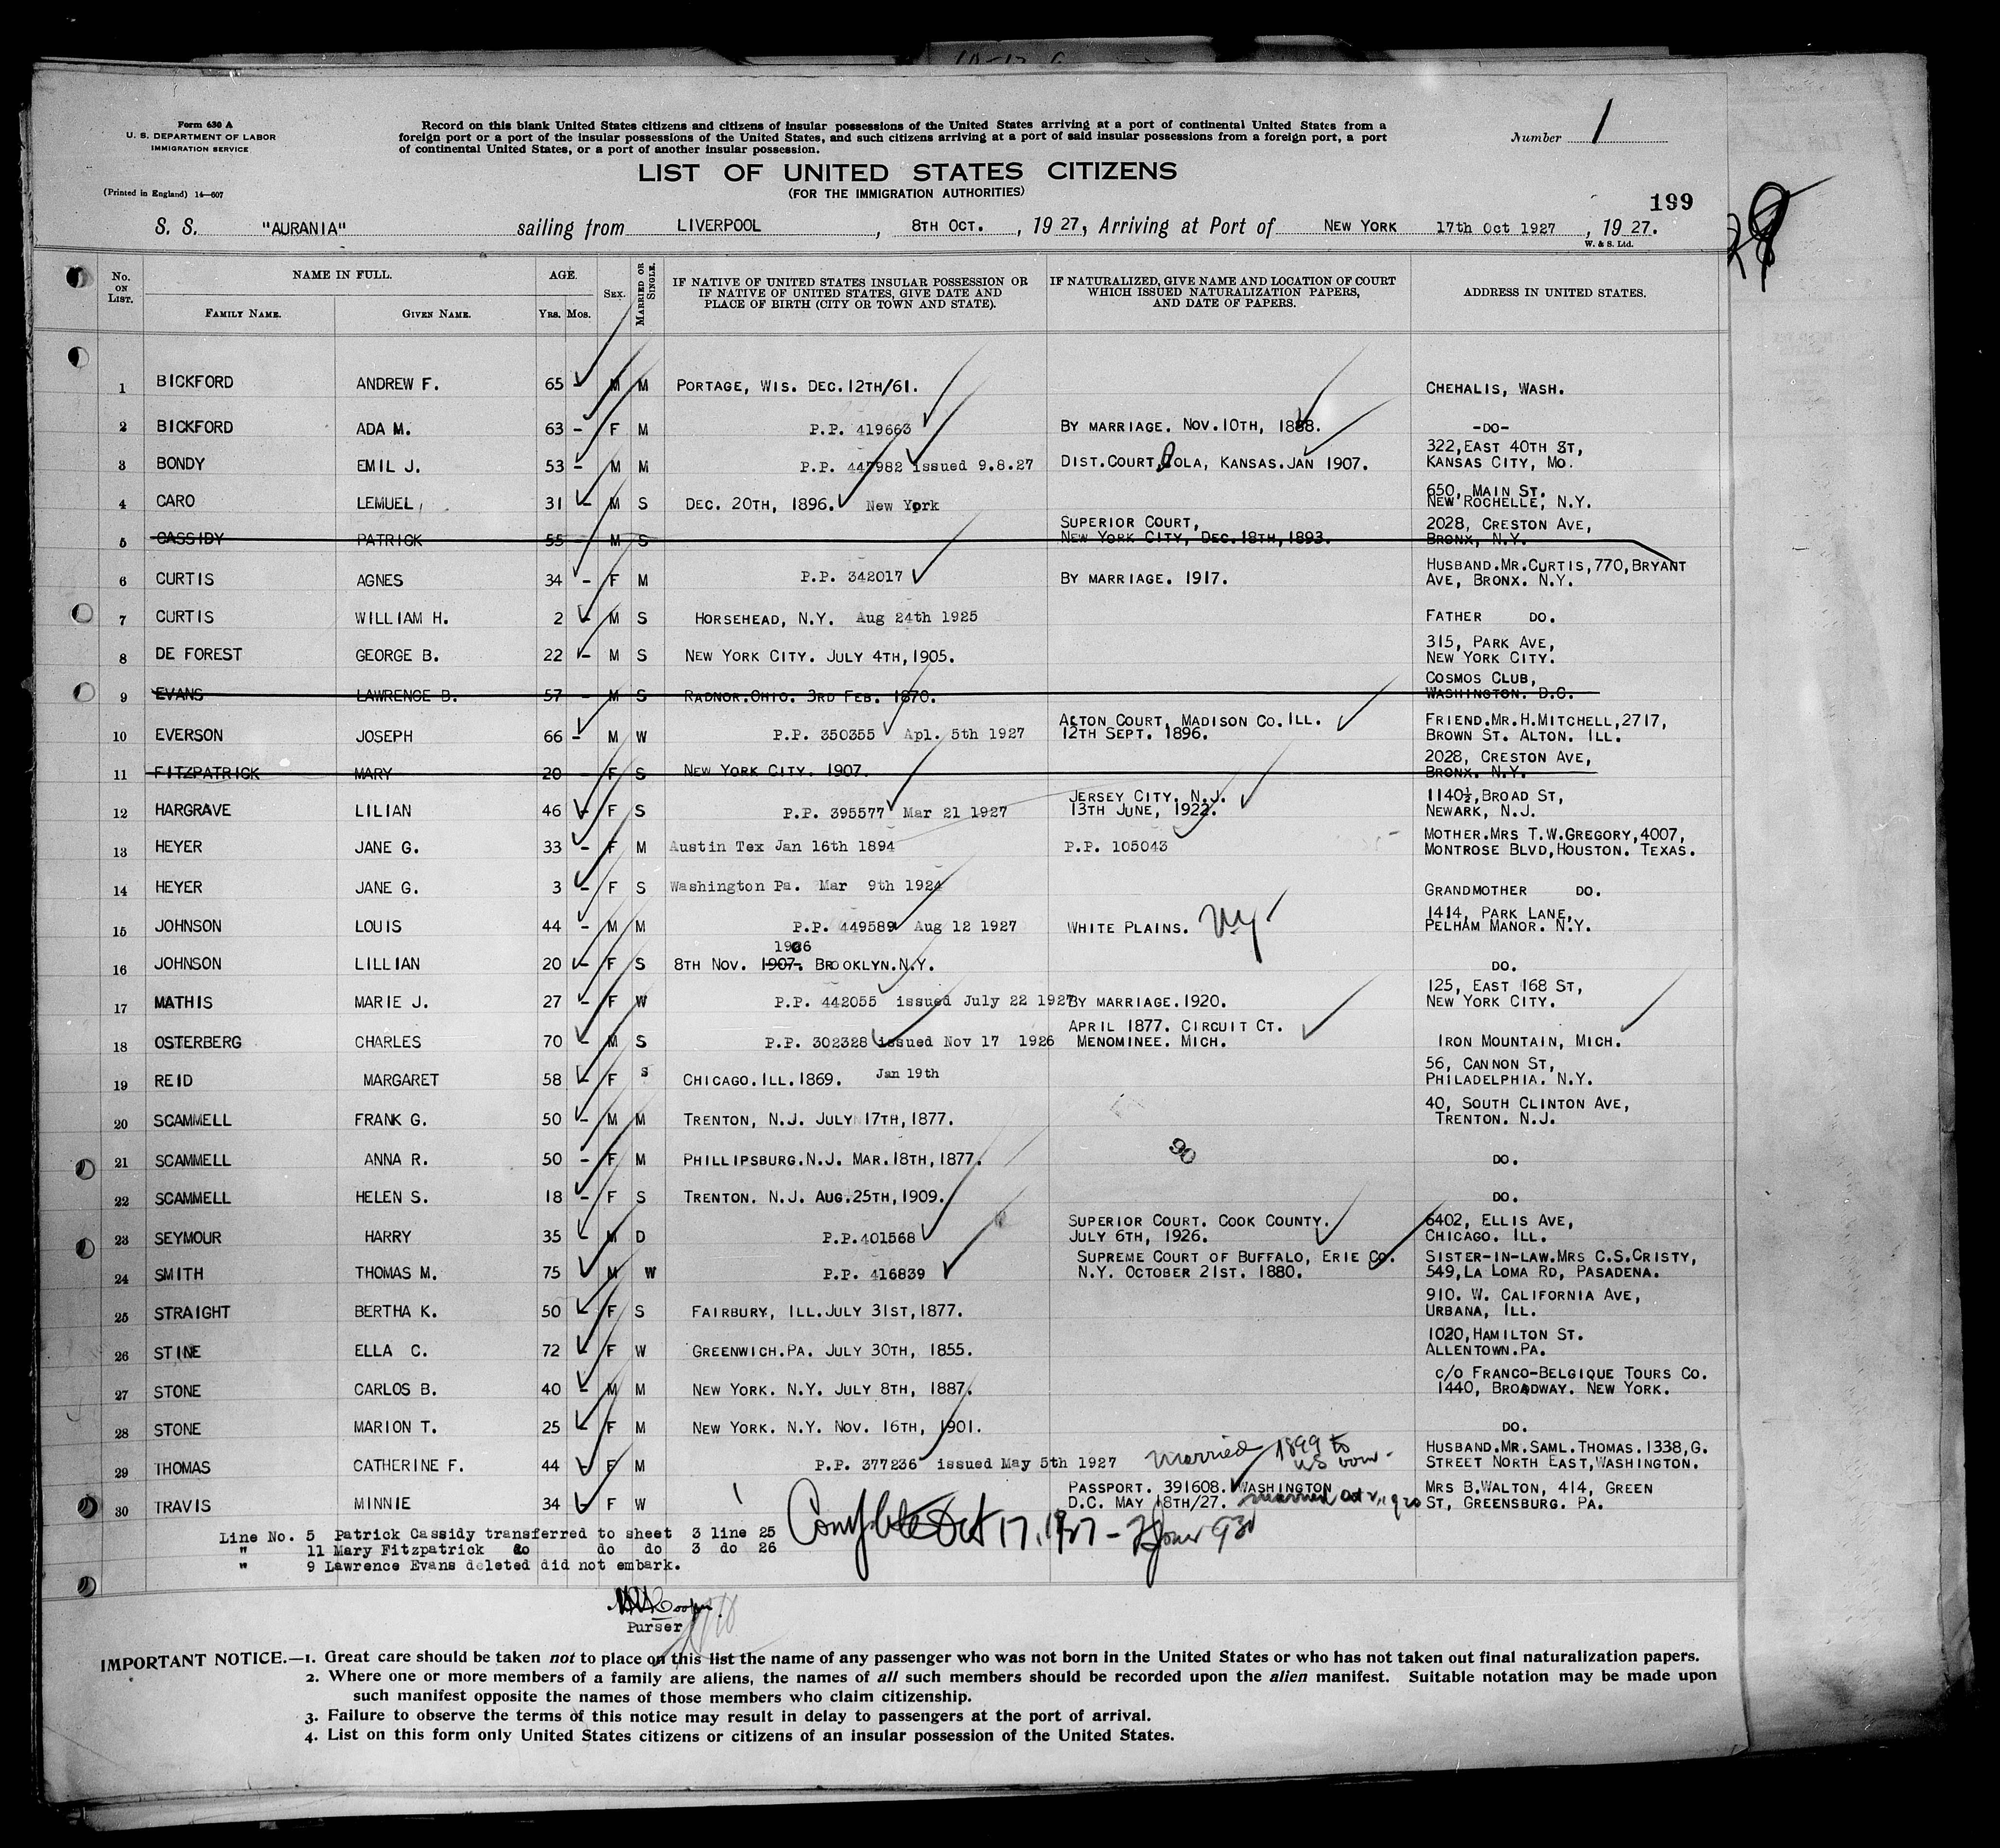 Form 630 A
U. S. DEPARTMENT OF LABOR
IMMIGRATION SERVICE
(Printed in England) 14—607
Record on this blank United States citizens and citizens of insular possessions of the United States arriving at a port of continental United States from a
foreign port or a port of the insular possessions of the United States, and such citizens arriving at a port of said insular possessions from a foreign port, a port
of continental United States, or a port of another insular possession.
Number 1
LIST OF UNITED STATES CITIZENS
(FOR THE IMMIGRATION AUTHORITIES)
199
S. S. "AURANIA" sailing from LIVERPOOL, 8TH OCT., 19 27, Arriving at Port of NEW YORK 17th Oct 1927, 19 27.
W. & S. Ltd.
No. ON LIST. NAME IN FULL. FAMILY NAME. GIVEN NAME. AGE. YRS. MOS. SEX. MARRIED OR SINGLE. IF NATIVE OF UNITED STATES INSULAR POSSESSION OR IF NATIVE OF UNITED STATES, GIVE DATE AND PLACE OF BIRTH (CITY OR TOWN AND STATE). IF NATURALIZED, GIVE NAME AND LOCATION OF COURT WHICH ISSUED NATURALIZATION PAPERS, AND DATE OF PAPERS. ADDRESS IN UNITED STATES.
1 BICKFORD ANDREW F. 65 - M M PORTAGE, WIS. DEC. 12TH/61. CHEHALIS, WASH.
2 BICKFORD ADA M. 63 - F M P.P. 419663 BY MARRIAGE. NOV. 10TH, 1888. -DO-
3 BONDY EMIL J. 53 - M M P.P. 447982 issued 9.8.27 DIST. COURT, IOLA, KANSAS. JAN 1907. 322, EAST 40TH ST, KANSAS CITY, MO.
4 CARO LEMUEL 31 - M S DEC. 20TH, 1896. New York 650, MAIN ST. NEW ROCHELLE, N.Y.
5 CASSIDY PATRICK 55 - M S SUPERIOR COURT, NEW YORK CITY, DEC. 18TH, 1893. 2028, CRESTON AVE, BRONX, N.Y.
6 CURTIS AGNES 34 - F M P.P. 342017 BY MARRIAGE. 1917. HUSBAND. MR. CURTIS, 770, BRYANT AVE, BRONX. N.Y.
7 CURTIS WILLIAM H. 2 - M S HORSEHEAD, N.Y. Aug 24th 1925 FATHER DO.
8 DE FOREST GEORGE B. 22 - M S NEW YORK CITY. JULY 4TH, 1905. 315, PARK AVE, NEW YORK CITY.
9 EVANS LAWRENCE B. 57 - M S RADNOR. OHIO. 3RD FEB. 1870. COSMOS CLUB, WASHINGTON. D.C.
10 EVERSON JOSEPH 66 - M W P.P. 350355 Apl. 5th 1927 ALTON COURT, MADISON CO. ILL. 12TH SEPT. 1896. FRIEND. MR. H. MITCHELL, 2717, BROWN ST. ALTON. ILL.
11 FITZPATRICK MARY 20 - F S NEW YORK CITY. 1907. 2028, CRESTON AVE, BRONX. N.Y.
12 HARGRAVE LILIAN 46 - F S P.P. 395577 Mar 21 1927 JERSEY CITY, N.J. 13TH JUNE, 1922. 1140½, BROAD ST, NEWARK, N.J.
13 HEYER JANE G. 33 - F M Austin Tex Jan 16th 1894 P.P. 105043 MOTHER. MRS T.W. GREGORY, 4007, MONTROSE BLVD, HOUSTON. TEXAS.
14 HEYER JANE G. 3 - F S Washington Pa. Mar 9th 1924 GRANDMOTHER DO.
15 JOHNSON LOUIS 44 - M M P.P. 449589 Aug 12 1927 WHITE PLAINS. N.Y. 1414, PARK LANE, PELHAM MANOR. N.Y.
16 JOHNSON LILLIAN 20 - F S 8TH NOV. 1907. 1906 BROOKLYN. N.Y. DO.
17 MATHIS MARIE J. 27 - F W P.P. 442055 issued July 22 1927 BY MARRIAGE. 1920. 125, EAST 168 ST, NEW YORK CITY.
18 OSTERBERG CHARLES 70 - M S P.P. 302328 issued Nov 17 1926 APRIL 1877. CIRCUIT CT. MENOMINEE. MICH. IRON MOUNTAIN, MICH.
19 REID MARGARET 58 - F S CHICAGO. ILL. 1869. Jan 19th 56, CANNON ST, PHILADELPHIA. N.Y.
20 SCAMMELL FRANK G. 50 - M M TRENTON, N.J. JULY 17TH, 1877. 40, SOUTH CLINTON AVE, TRENTON. N.J.
21 SCAMMELL ANNA R. 50 - F M PHILLIPSBURG. N.J. MAR. 18TH, 1877. DO.
22 SCAMMELL HELEN S. 18 - F S TRENTON. N.J. AUG. 25TH, 1909. DO.
23 SEYMOUR HARRY 35 - M D P.P. 401568 SUPERIOR COURT. COOK COUNTY. JULY 6TH, 1926. 6402, ELLIS AVE, CHICAGO. ILL.
24 SMITH THOMAS M. 75 M W P.P. 416839 SUPREME COURT OF BUFFALO, ERIE CO. N.Y. OCTOBER 21ST. 1880. SISTER-IN-LAW. MRS C.S. CRISTY, 549, LA LOMA RD, PASADENA.
25 STRAIGHT BERTHA K. 50 - F S FAIRBURY, ILL. JULY 31ST, 1877. 910. W. CALIFORNIA AVE, URBANA, ILL.
26 STINE ELLA C. 72 - F W GREENWICH. PA. JULY 30TH, 1855. 1020, HAMILTON ST. ALLENTOWN. PA.
27 STONE CARLOS B. 40 - M M NEW YORK. N.Y. JULY 8TH, 1887. C/O FRANCO-BELGIQUE TOURS CO. 1440, BROADWAY. NEW YORK.
28 STONE MARION T. 25 - F M NEW YORK. N.Y. NOV. 16TH, 1901. DO.
29 THOMAS CATHERINE F. 44 - F M P.P. 377236 issued May 5th 1927 married 1899 to US born - HUSBAND. MR. SAML. THOMAS. 1338, G. STREET NORTH EAST, WASHINGTON.
30 TRAVIS MINNIE 34 - F W PASSPORT. 391608. WASHINGTON D.C. MAY 18TH/27. married 1920 MRS B. WALTON, 414, GREEN ST, GREENSBURG. PA.
Line No. 5 Patrick Cassidy transferred to sheet 3 line 25
" 11 Mary Fitzpatrick do do do 3 do 26
" 9 Lawrence Evans deleted did not embark.
Complete Oct 17, 1927 -
Purser
IMPORTANT NOTICE.—1. Great care should be taken not to place on this list the name of any passenger who was not born in the United States or who has not taken out final naturalization papers.
2. Where one or more members of a family are aliens, the names of all such members should be recorded upon the alien manifest. Suitable notation may be made upon
such manifest opposite the names of those members who claim citizenship.
3. Failure to observe the terms of this notice may result in delay to passengers at the port of arrival.
4. List on this form only United States citizens or citizens of an insular possession of the United States.